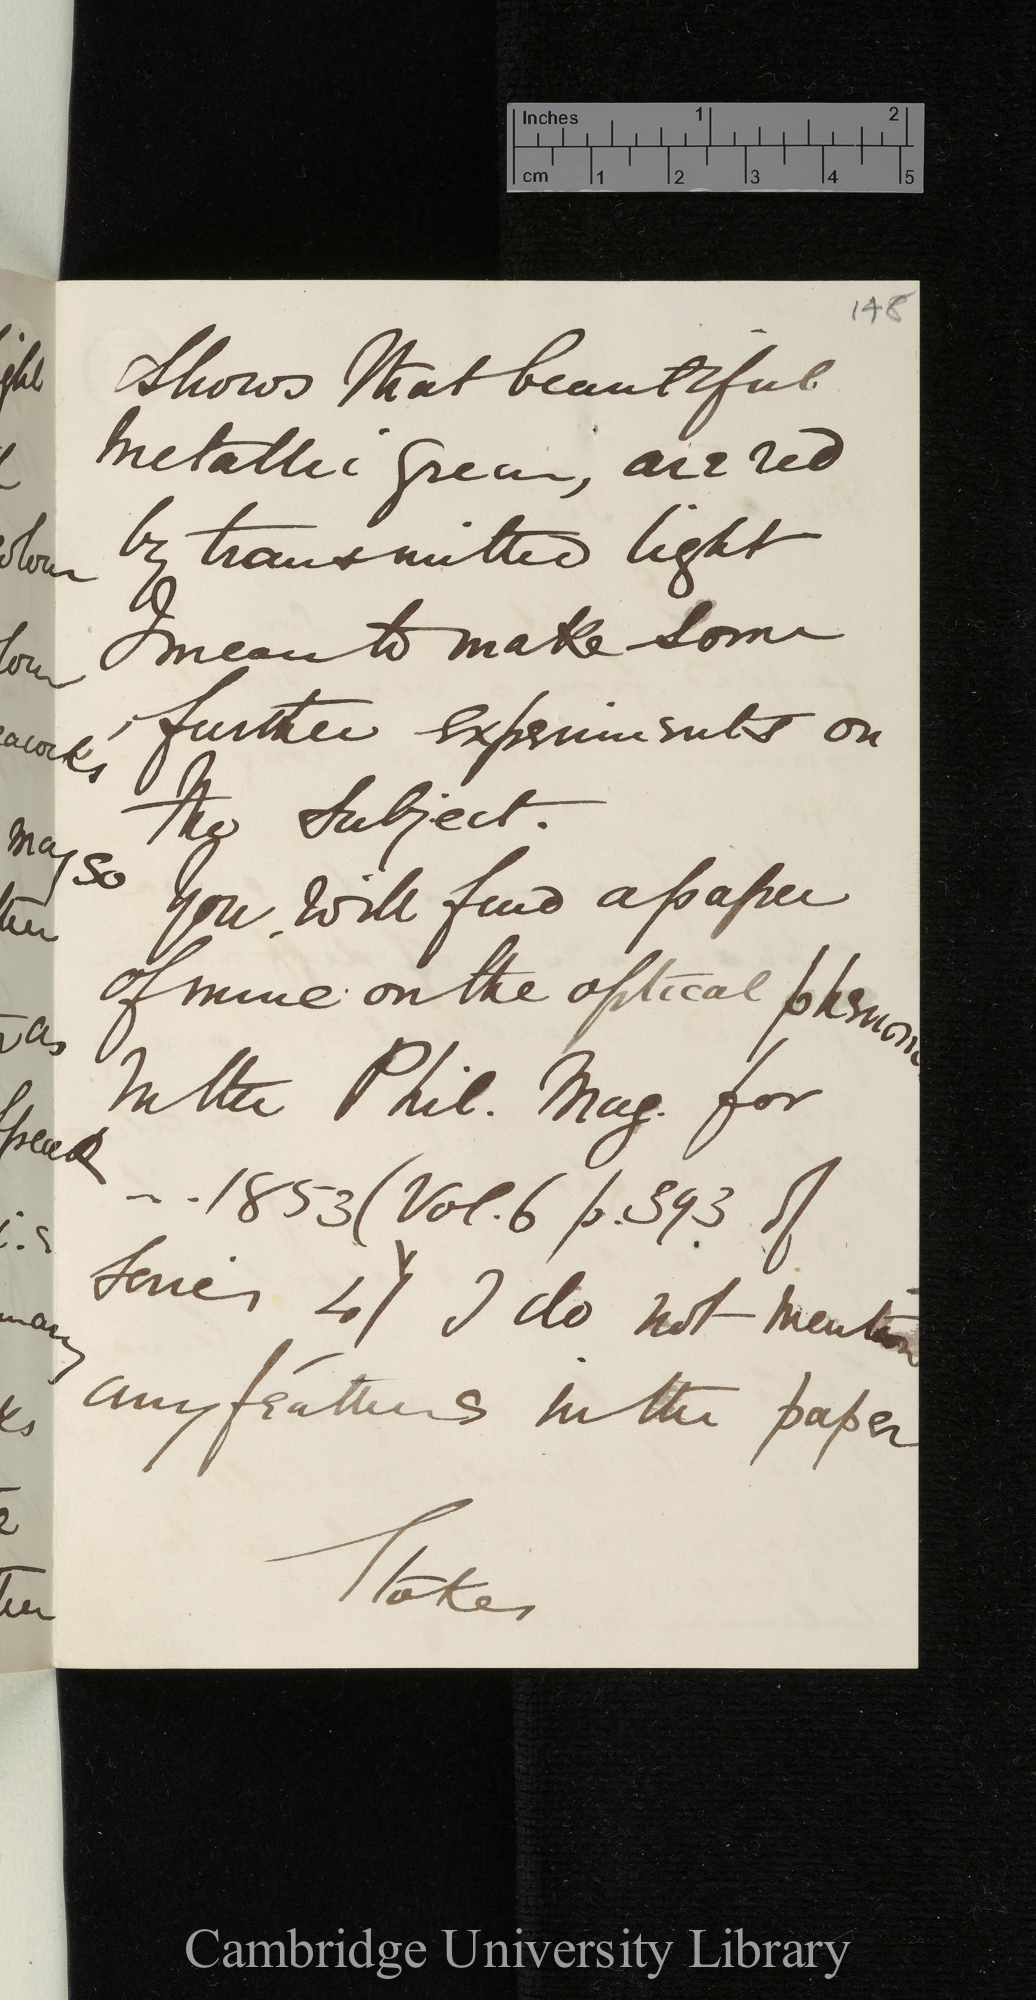 Inches 1 2
cm 1 2 3 4 5
148
shows that beautiful
metallic green, are red
by transmitted light
I mean to make some
further experiments on
the subject.
You will find a paper
of mine on the optical phenom
in the Phil. Mag. for
— . 1853 (Vol. 6 p. 393 of
Series 4) I do not mention
any feathers in the paper
Stokes
olour
lour
eacock's
may so
ther
as
speak
i.s
many
ks
Cambridge University Library